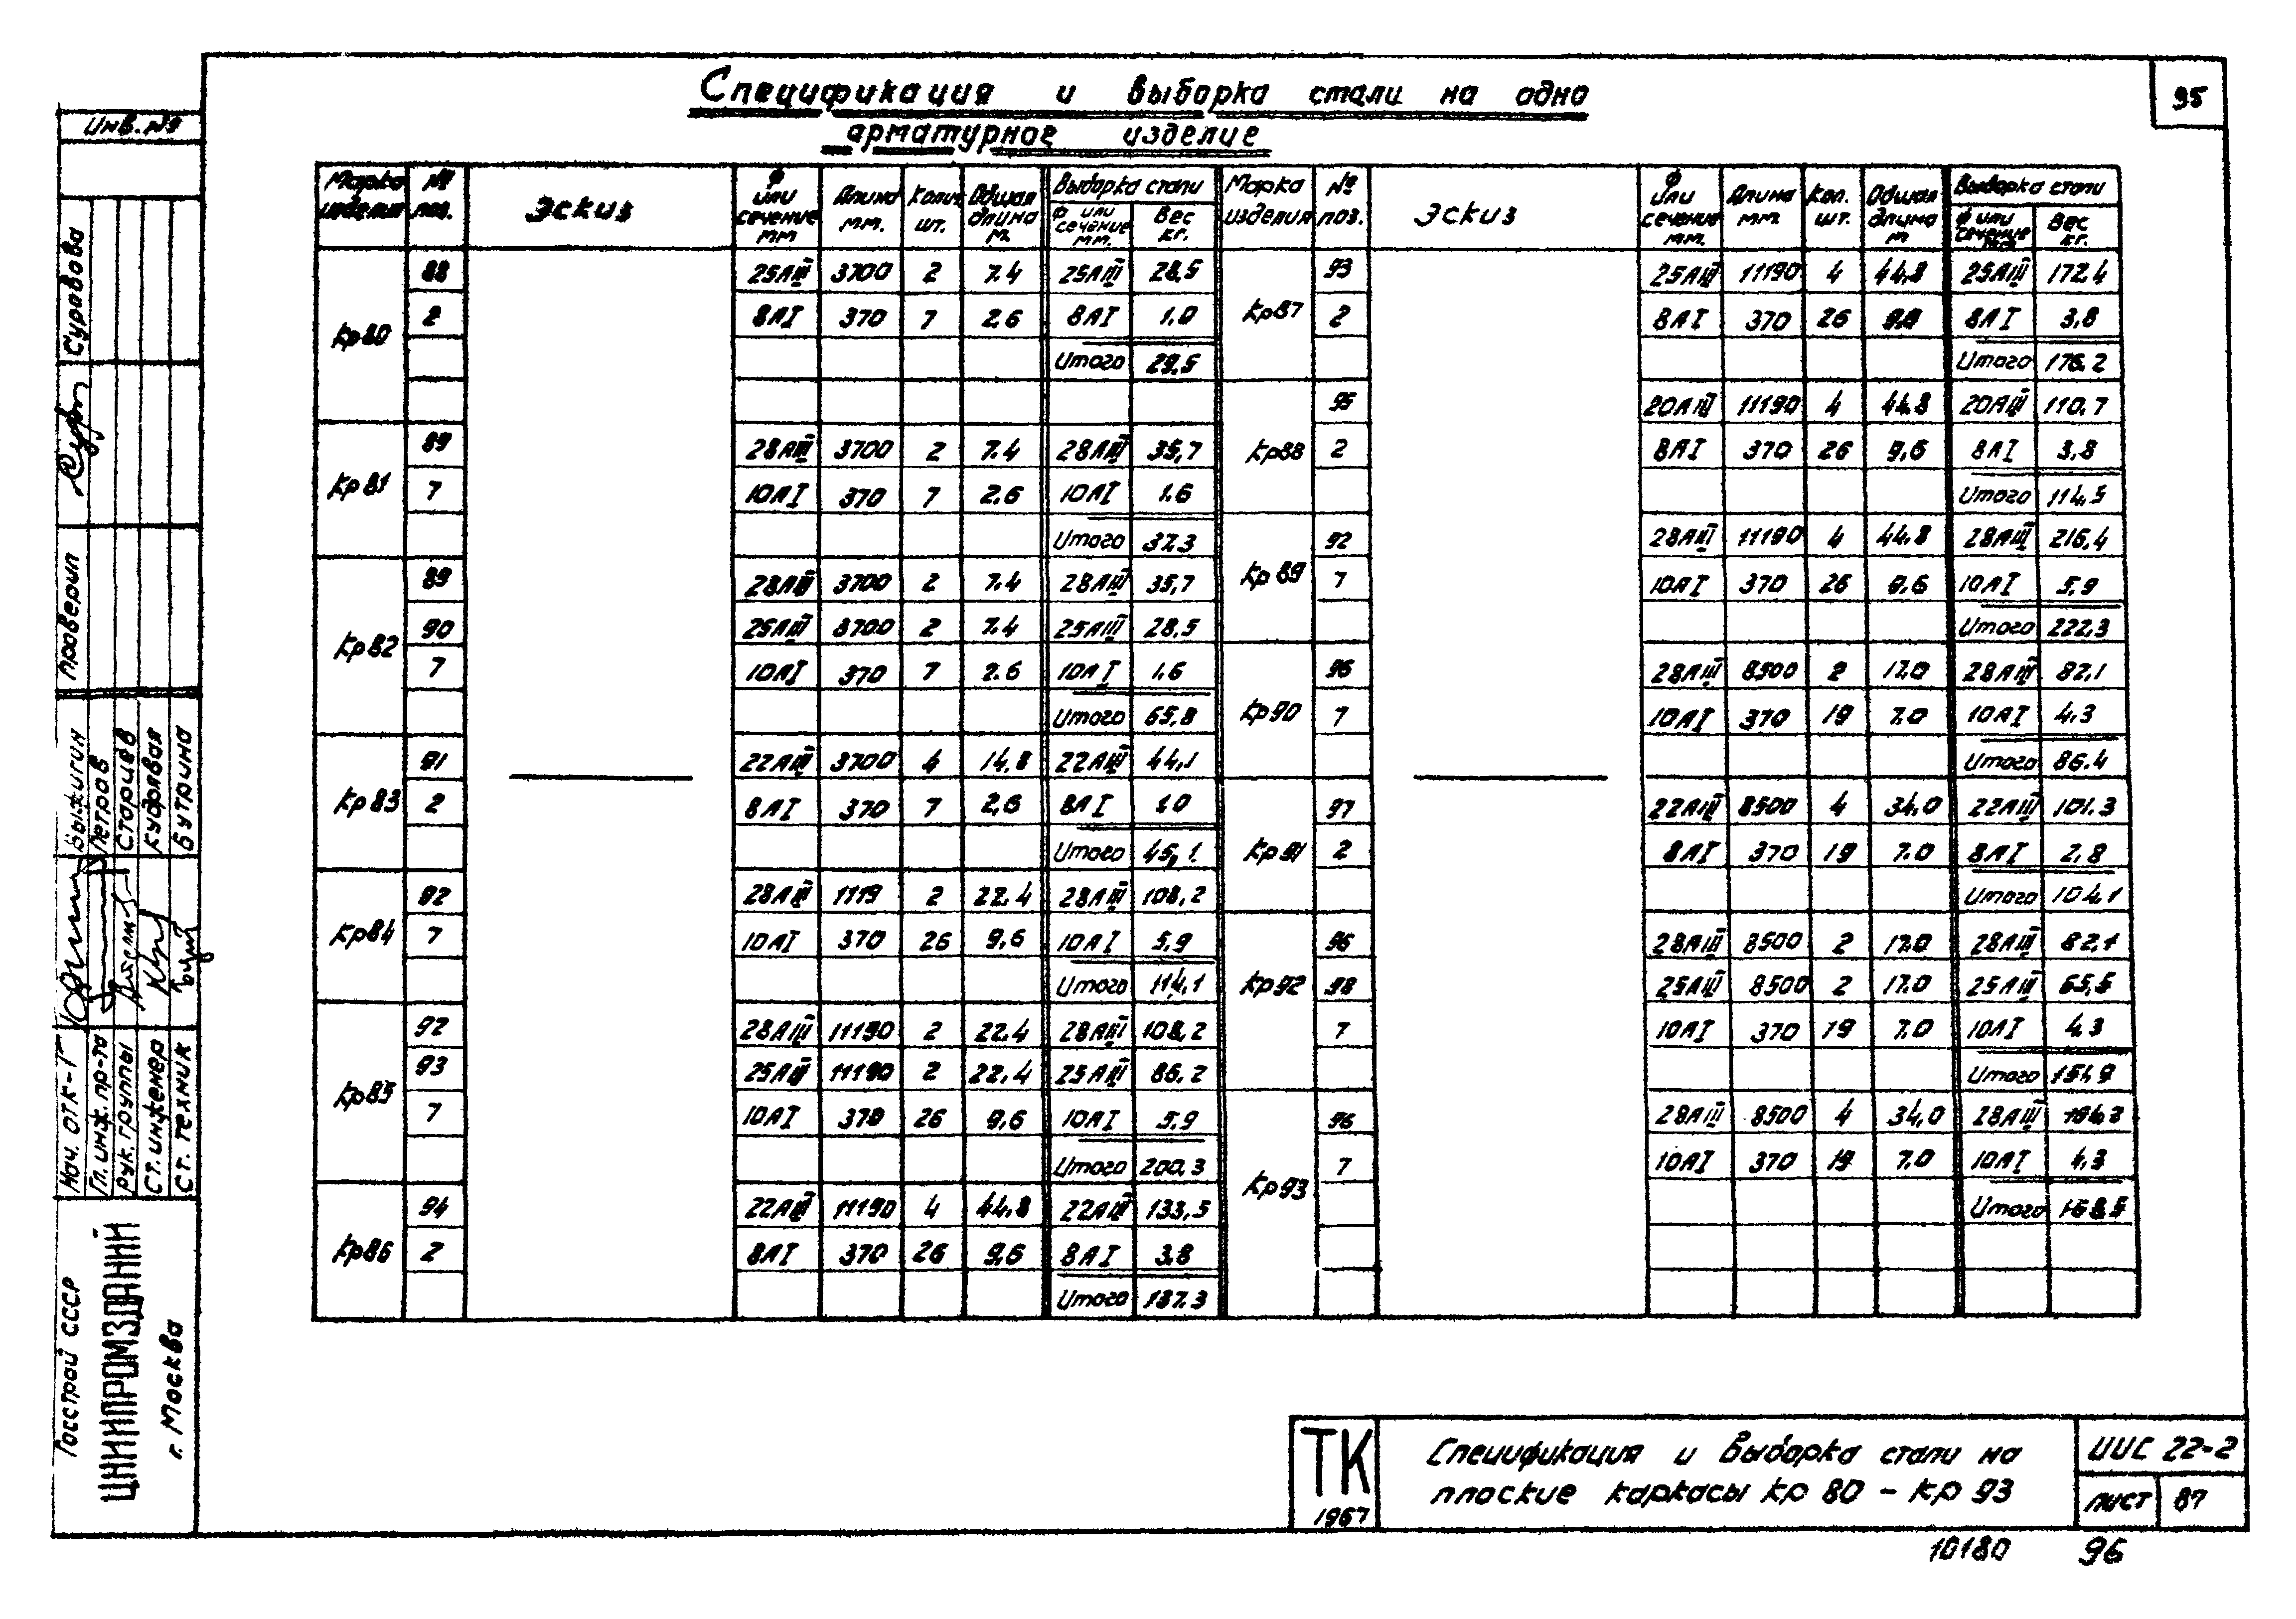 95
Спецификация и выборка стали на одно
арматурное изделие
Марка изделия | №№ поз. | Эскиз | Ф или сечение мм | Длина мм. | Колич. шт. | Общая длина м. | Выборка стали | Ф или сечение мм. | Вес кг.
Кр80 | 88 | 25АIII | 3700 | 2 | 7.4 | 25АIII | 28,5
2 | 8АI | 370 | 7 | 2,6 | 8АI | 1.0
Итого | 29,5
Кр81 | 89 | 28АIII | 3700 | 2 | 7.4 | 28АIII | 35,7
7 | 10АI | 370 | 7 | 2.6 | 10АI | 1.6
Итого | 37.3
Кр82 | 89 | 28АIII | 3700 | 2 | 7.4 | 28АIII | 35,7
90 | 25АIII | 3700 | 2 | 7.4 | 25АIII | 28,5
7 | 10АI | 370 | 7 | 2.6 | 10АI | 1.6
Итого | 65,8
Кр83 | 91 | 22АIII | 3700 | 4 | 14,8 | 22АIII | 44,1
2 | 8АI | 370 | 7 | 2,6 | 8АI | 1.0
Итого | 45,1
Кр84 | 92 | 28АIII | 1119 | 2 | 22.4 | 28АIII | 108,2
7 | 10АI | 370 | 26 | 9,6 | 10АI | 5,9
Итого | 114,1
Кр85 | 92 | 28АIII | 11190 | 2 | 22.4 | 28АIII | 108,2
93 | 25АIII | 11190 | 2 | 22.4 | 25АIII | 86,2
7 | 10АI | 370 | 26 | 9,6 | 10АI | 5,9
Итого | 200.3
Кр86 | 94 | 22АIII | 11190 | 4 | 44,8 | 22АIII | 133,5
2 | 8АI | 370 | 26 | 9,6 | 8АI | 3.8
Итого | 137.3
Марка изделия | №№ поз. | Эскиз | Ф или сечение мм. | Длина мм. | Кол. шт. | Общая длина м | Выборка стали | Ф или сечение мм. | Вес кг.
Кр87 | 93 | 25АIII | 11190 | 4 | 44,8 | 25АIII | 172.4
2 | 8АI | 370 | 26 | 8АI | 3,8
Итого | 176.2
Кр88 | 95 | 20АIII | 11190 | 4 | 44.8 | 20АIII | 110.7
2 | 8АI | 370 | 26 | 9,6 | 8АI | 3,8
Итого | 114,5
Кр89 | 92 | 28АIII | 11190 | 4 | 44,8 | 28АIII | 216,4
7 | 10АI | 370 | 26 | 9,6 | 10АI | 5,9
Итого | 222,3
Кр90 | 96 | 28АIII | 8500 | 2 | 17.0 | 28АIII | 82,1
7 | 10АI | 370 | 19 | 7.0 | 10АI | 4.3
Итого | 86.4
Кр91 | 97 | 22АIII | 8500 | 4 | 34,0 | 22АIII | 101.3
2 | 8АI | 370 | 19 | 7.0 | 8АI | 2,8
Итого | 104,1
Кр92 | 96 | 28АIII | 8500 | 2 | 17.0 | 28АIII | 82,1
98 | 25АIII | 8500 | 2 | 17.0 | 25АIII | 65,5
7 | 10АI | 370 | 19 | 7.0 | 10АI | 4,3
Итого | 151,9
Кр93 | 96 | 28АIII | 8500 | 4 | 34,0 | 28АIII | 164,2
7 | 10АI | 370 | 19 | 7.0 | 10АI | 4,3
Итого | 168,5
Инв. №
Проверил
Суравова
Нач. ОТК-1 Выжигин
Гл. инж. пр-та Петров
Рук. группы Старцев
Ст. инженер Кудрявая
Ст. техник Бутрина
Госстрой СССР
ЦНИИПРОМЗДАНИЙ
г. Москва
ТК
1967
Спецификация и выборка стали на
плоские каркасы Кр 80 – Кр 93
ИИС 22-2
лист 87
10180 96